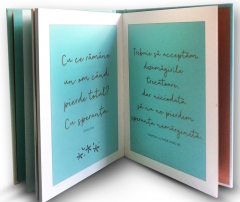 Cu ce rămâne
un om când
pierde totul?
Cu speranța
Trebuie să acceptăm
dezamăgirile
trecătoare,
dar niciodată
să nu ne pierdem
speranța nemărginită.